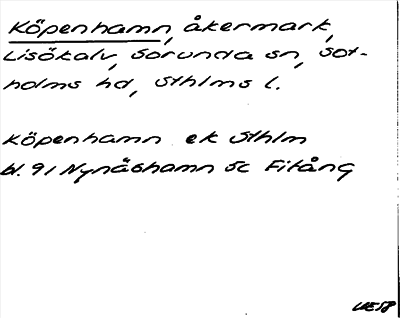 Köpenhamn, åkermark,
Lisökalv, Sorunda sn, Sot-
holms hd, Sthlms l.
Köpenhamn ek Sthlm
bl. 91 Nynäshamn Sc Fitång